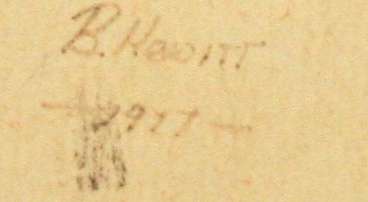 B. Hewitt
— 2977 —